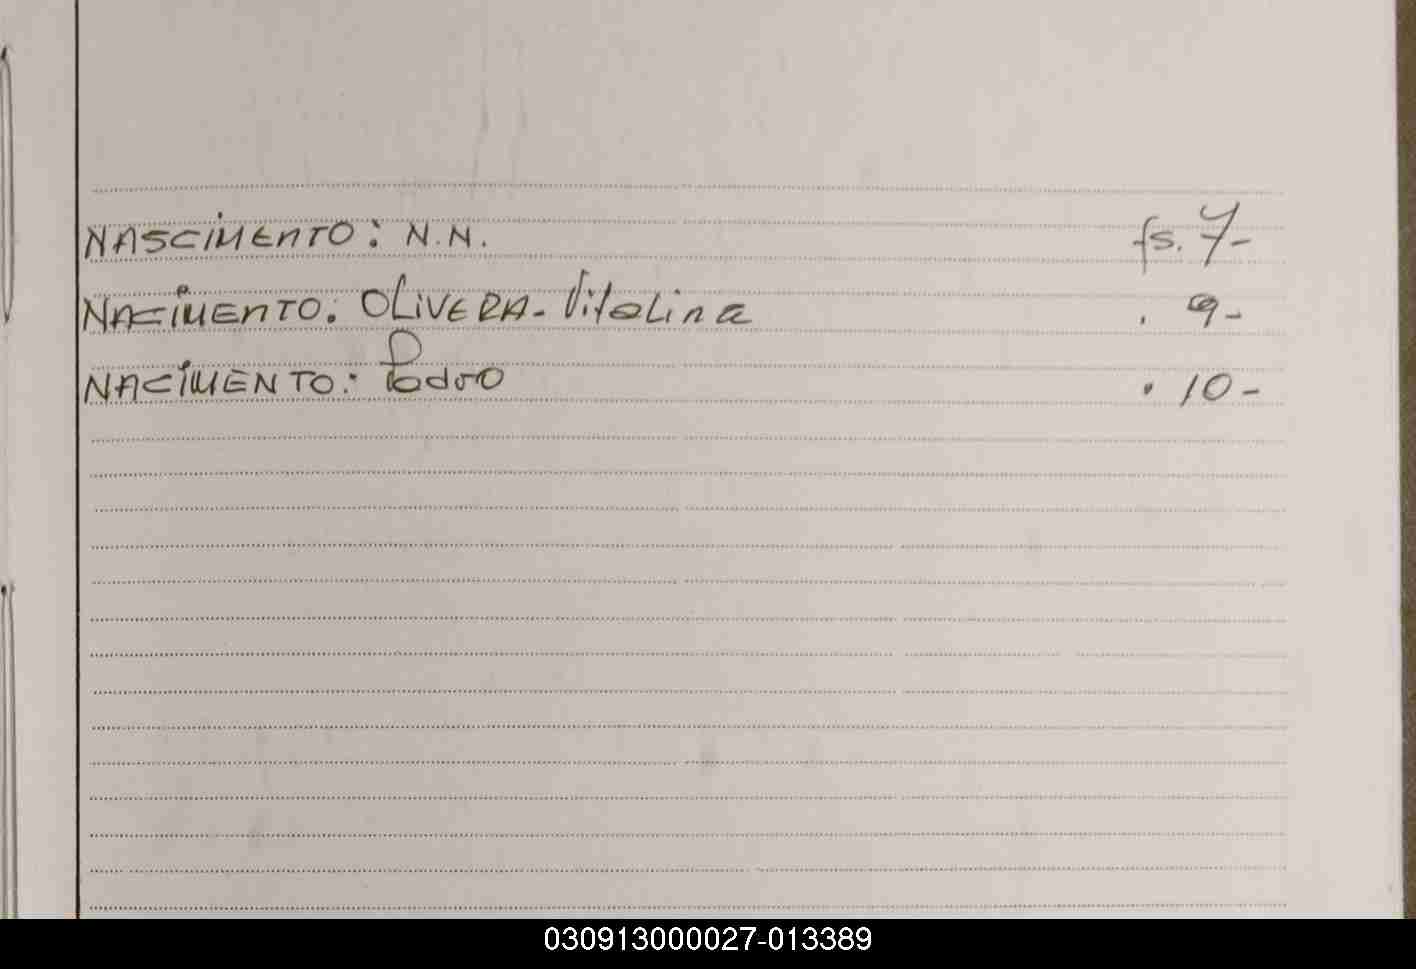 NASCIMENTO: N.N. fs. 7-
NACIMENTO: OLIVERA - Vitalina . 9-
NACIMENTO: Pedro . 10-
030913000027-013389